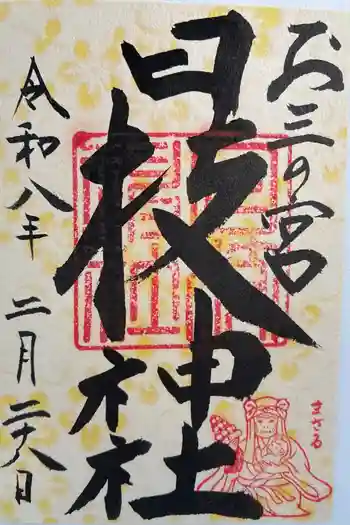 お三の宮
日枝神社
令和八年 二月二十八日
まさる